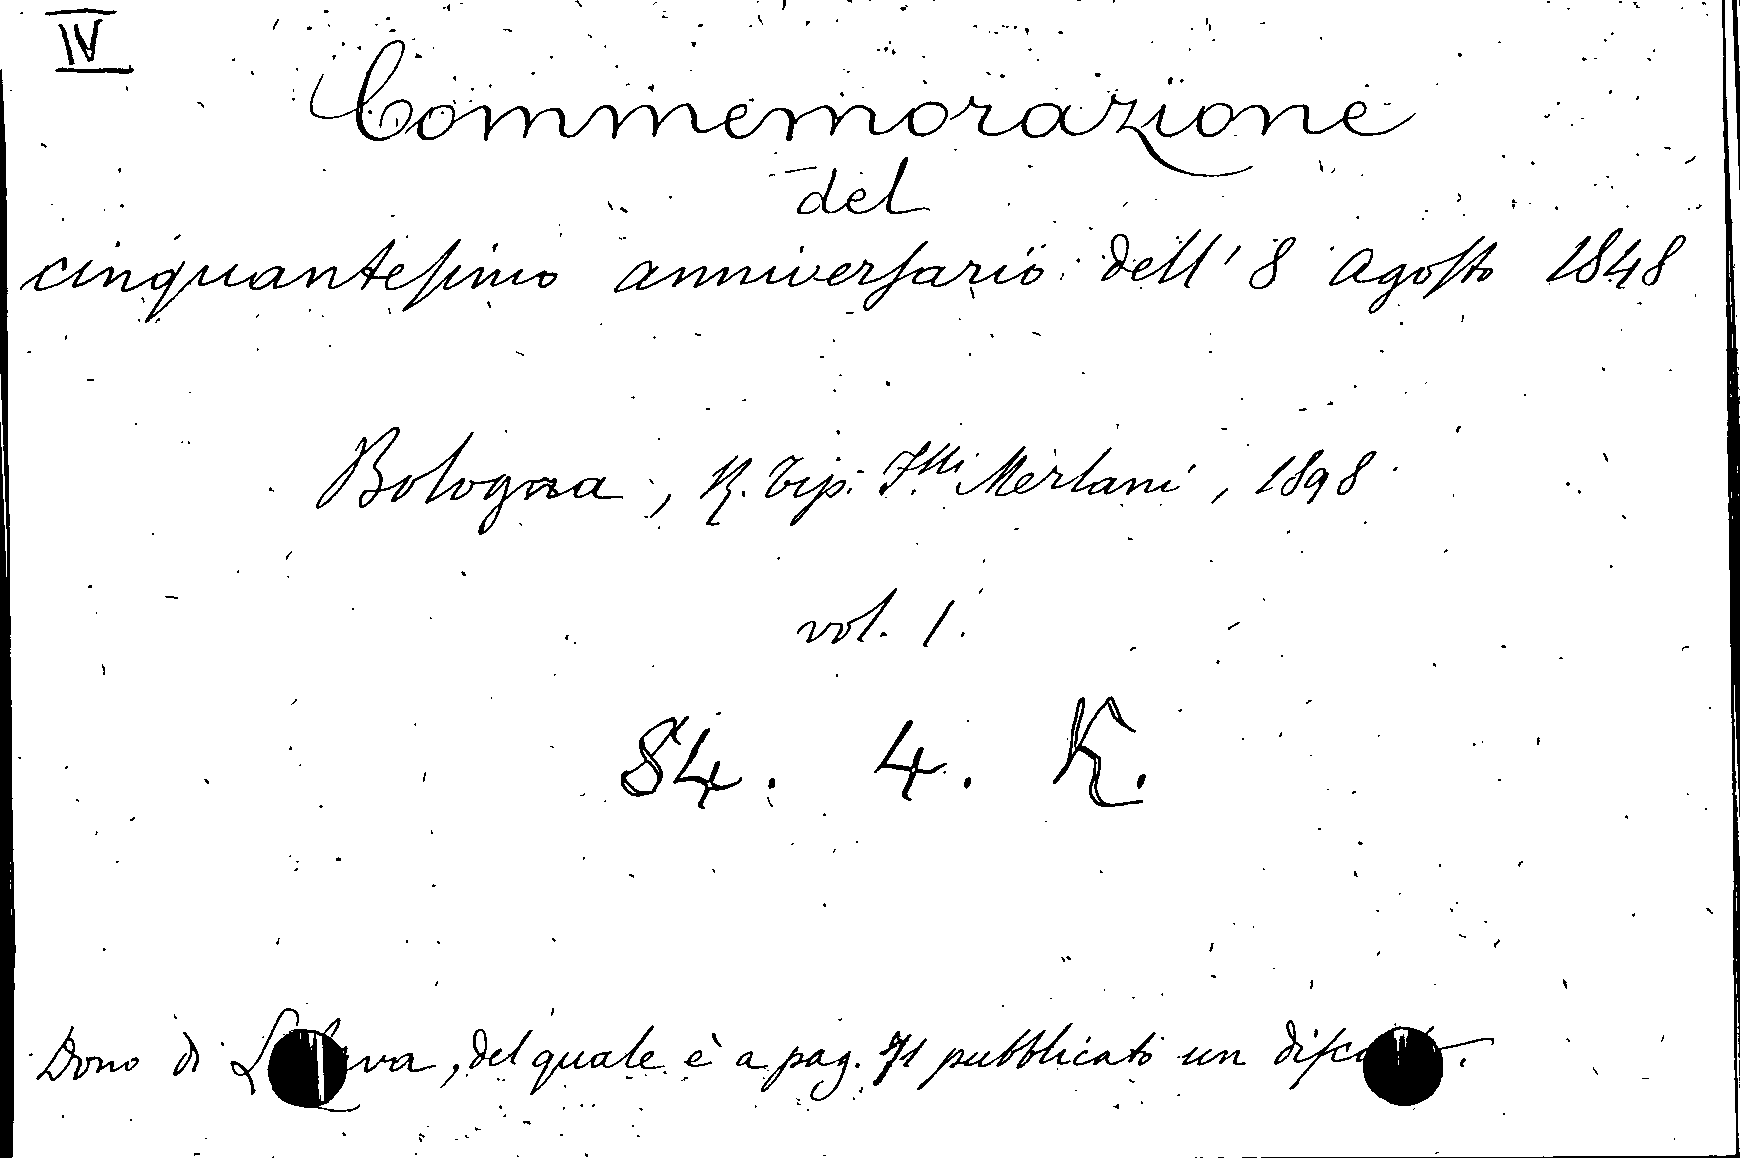 IV
Commemorazione
del
cinquantesimo anniversario dell' 8 Agosto 1848
Bologna, R. Tip. F.lli Merlani, 1898
vol. 1.
84. 4. K.
Dono di , del quale è a pag. 71 pubblicato un